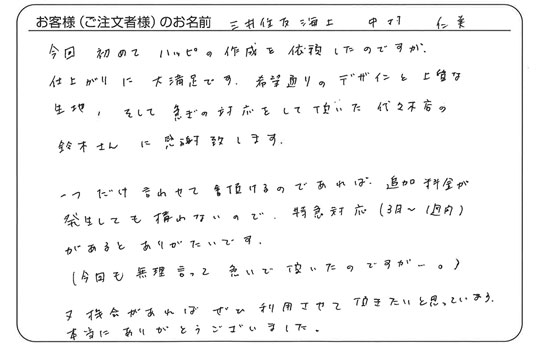 お客様(ご注文者様)のお名前 三井住友海上 中村 仁美
今回 初めて ハッピの作成を依頼したのですが、
仕上がりに大満足です。希望通りのデザインと上質な
生地、そして急ぎの対応をして頂いた代々木店の
鈴木さんに感謝致します。
一つだけ言わせて頂けるのであれば、追加料金が
発生しても構わないので、特急対応(3日〜1週内)
があるとありがたいです。
(今回も無理言って急いで頂いたのですが…。)
又機会があればぜひ利用させて頂きたいと思っています。
本当にありがとうございました。